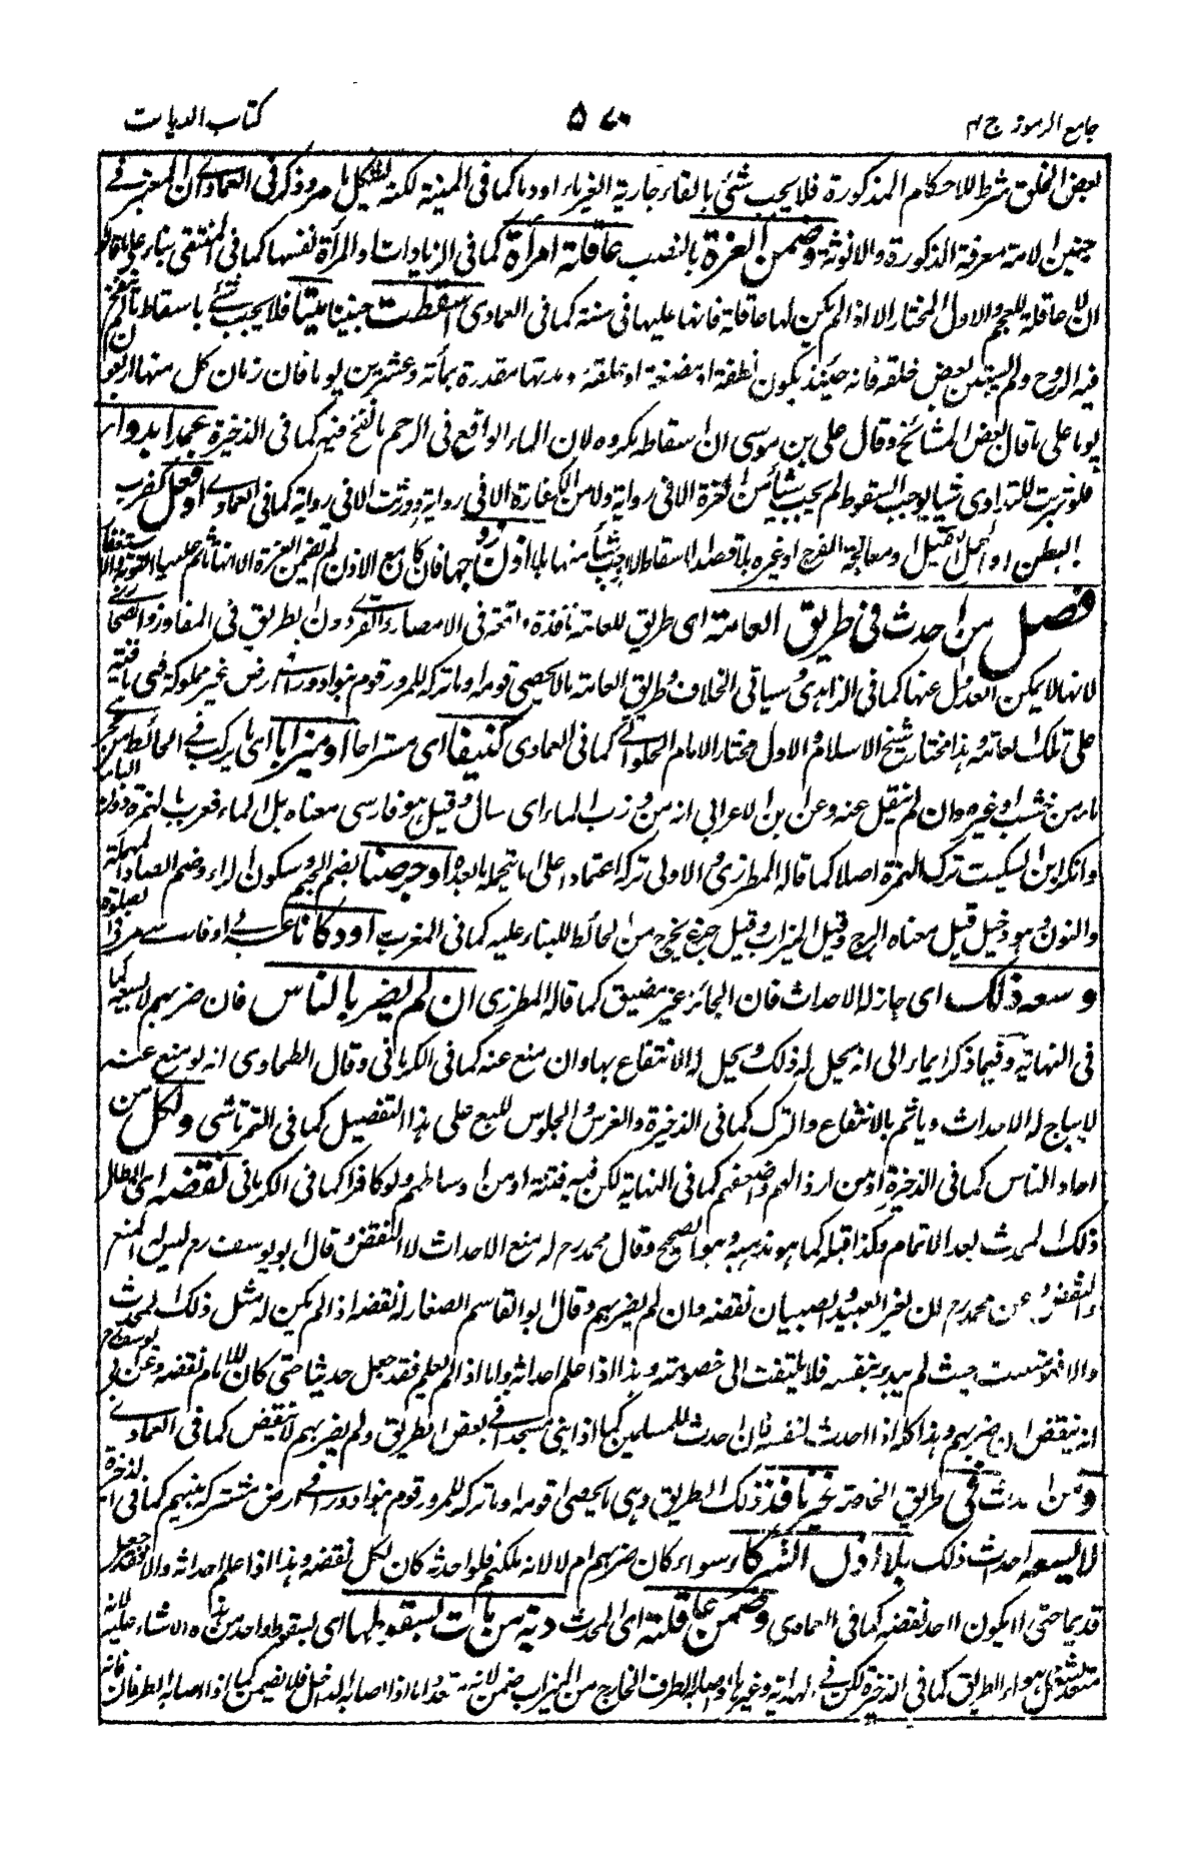 جامع الرموز ج ٤
٥٧٠
كتاب الديات
بعض الخلق شرط للاحكام المذكورة فلا يجب شئ بالقاء جارية الغير اودما كما في المنية لكنه مشكل بما مر وذكر في العمادي ان المعتبر في
جنين الامة معرفة الذكورة والانوثة وضمن الغرة بالنصب عاقلة امرأة كما في الزيادات والمرأة نفسها كما في المنتقى بناء على ما قالوا
ان لا عاقلة للعجم والاول المختار الا اذا لم يكن لها عاقلة فانها عليها في سنة كما في العمادي اسقطت جنينا ميتا فلا يجب شئ باسقاط ما لم ينفخ
فيه الروح ولم يستبن بعض خلقه فانه حينئذ يكون نطفة او مضغة او علقة ومدتها مقدرة بمأة وعشرين يوما فان زمان كل منها اربعون
يوما على ما قال بعض المشائخ وقال على بن موسى ان اسقاطه مكروه لان الماء الواقع في الرحم ما نفخ فيه كما في الذخيرة عمدا بدواء
فلو شربت للتداوى شيأ يوجب السقوط لم يجب شيأ من الغرة الا في رواية ولا من الكفارة الا في رواية وورثت الا في رواية كما في العمادي او فعل كضرب
البطن او احمل الثقيل او معالجة الفرج او غيره بلا قصد الاسقاط لا يجب شيأ منها بلا اذن زوجها فان كان مع الاذن لم يضمن الغرة الا انها تأثم عليها التوبة والاستغفار
فصل من احدث في طريق العامة اى طريق للعامة نافذة واقعة في الامصار والقرى دون الطريق في المفاوز والصحارى
لانها لا يمكن العدول عنها كما في الزاهدى وسياتى الخلاف وطريق العامة ما لا يحصى قومه او ما تركه للمرور قوم بنوا دورا في ارض غير مملوكة فهى باقية
على تلك العامة وهذا مختار شيخ الاسلام والاول مختار الامام الحلوائي كما في العمادي كنيفا اى مستراحا او ميزابا اى ما يركب في الحائط من حجر
او من خشب او غيره وان لم ينقل عنه وعن ابن الاعرابي انه من وزب الماء اى سال وقيل هو فارسى معناه بل الماء فعرب بالهمزة
وانكر ابن السكيت ترك الهمزة اصلا كما قاله المطرزى والاولى تركه اعتمادا على ما يتحمله بالعدة او جرصنا بضم الجيم وسكون الراء وضم الصاد المهملة
والنون وهو دخيل قيل معناه البرج وقيل الميزاب وقيل جذع يخرج من الحائط للبناء عليه كما في المغرب او دكانا عربي او فارسى
وسعه ذلك اى جاز له الاحداث فان الجائز غير مضيق كما قاله المطرزى ان لم يضر بالناس فان ضر بهم لا يسعه كما
في النهاية وفيما ذكر ايماء الى انه يحل له ذلك ويحل له الانتفاع بها وان منع عنه كما في الكرمانى وقال الطحاوى انه لو منع عنه
لا يباح له الاحداث وياثم بالانتفاع والترك كما في الذخيرة والغرس والجلوس للبيع على هذا التفصيل كما في التمرتاشى ولكل من
احاد الناس كما في الذخيرة او من ارذالهم واضعفهم كما في النهاية لكن فيه فتنة او من اوساطهم ولو كافرا كما في الكرمانى نقضه اى ابطال
ذلك المحدث بعد الاتمام وكذا قبله كما هو مذهبه وهو الصحيح وقال محمد رح له منع الاحداث لا النقض وقال ابو يوسف رح ليس له المنع
والنقض وعن محمد رح ان لغير العبيد والصبيان نقضه وان لم يضر بهم وقال ابو القاسم الصفار له نقضه اذا لم يكن له مثل ذلك المحدث
والا فهو متعنت حيث لم يبدء بنفسه فلا يلتفت الى خصومته وهذا اذا علم احداثه واما اذا لم يعلم فقد جعل حديثا حتى كان للامام نقضه وعن ابي يوسف رح
انه ينقض ان ضر بهم وهذا كله اذا احدث لنفسه فان احدث للمسلمين كما اذا بنى مسجدا في بعض الطريق ولم يضر بهم لا ينقض كما في العمادي
ومن احدث في طريق الخاصة غير نافذ ذلك الطريق وهى ما يحصى قومه او ما تركه للمرور قوم بنوا دورا في ارض مشتركة بينهم كما في الذخيرة
لا يسعه احدث ذلك بلا اذن الشركاء سواء كان ضر بهم ام لا لانه ملكهم فلو احدثه كان لكل نقضه وهذا اذا علم احداثه والا فقد جعل
قديما حتى لا يكون لاحد نقضه كما في العمادي وضمن عاقلته اى المحدث دية من مات بسقوطها اى بسقوط واحد من هذه الاشياء عليه لانه
متعد بشغل هواء الطريق كما في الذخيرة لكن في الهداية وغيرها لو اصابه الطرف الخارج من الميزاب ضمن لانه متعد واما اذا اصابه الداخل فلا يضمن كما اذا اصابه الطرفان فانه